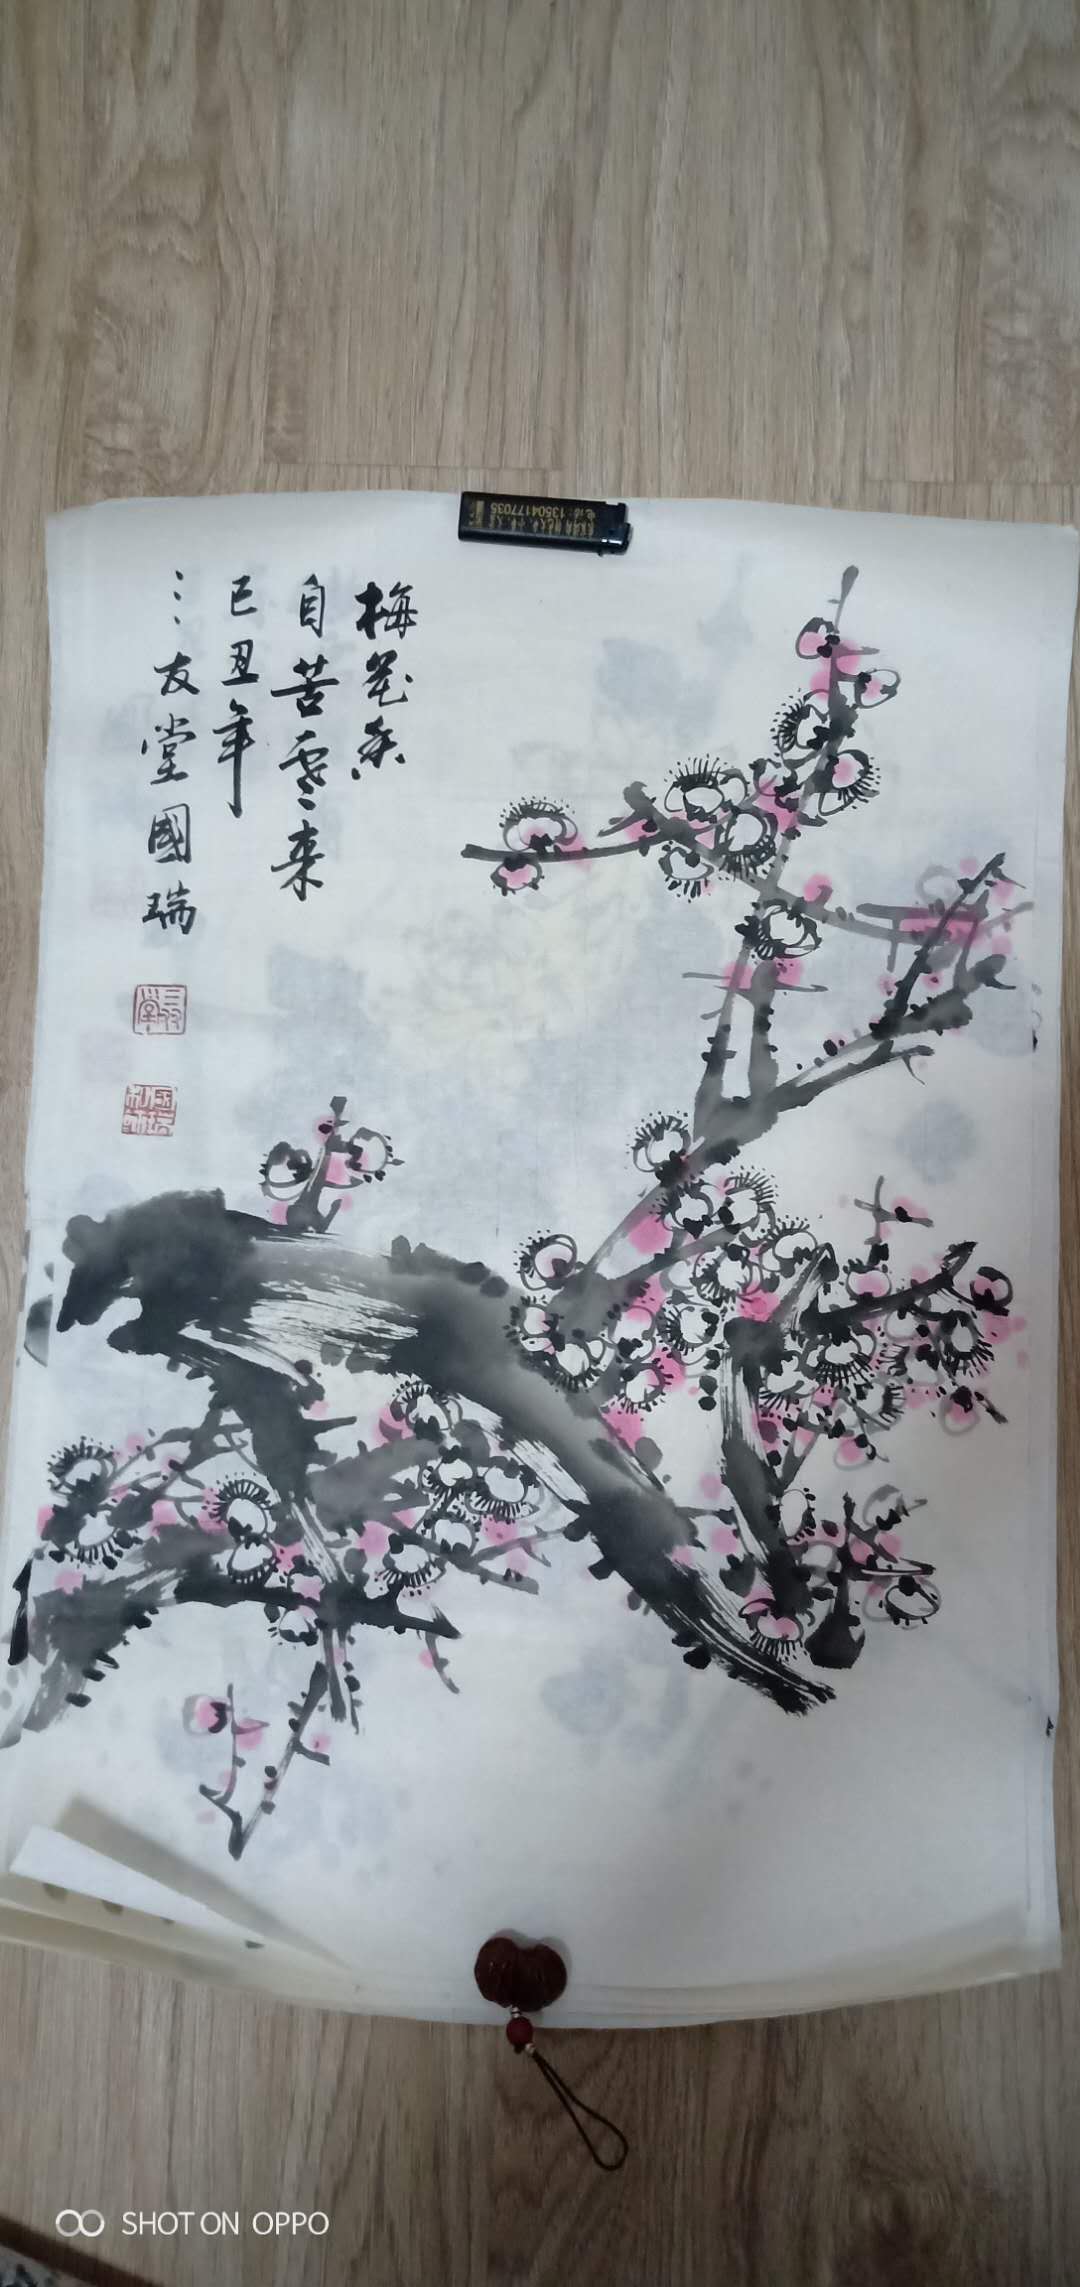 梅花香
自苦寒来
己丑年
三友堂國瑞
三友堂
电话:1350417035
SHOT ON OPPO